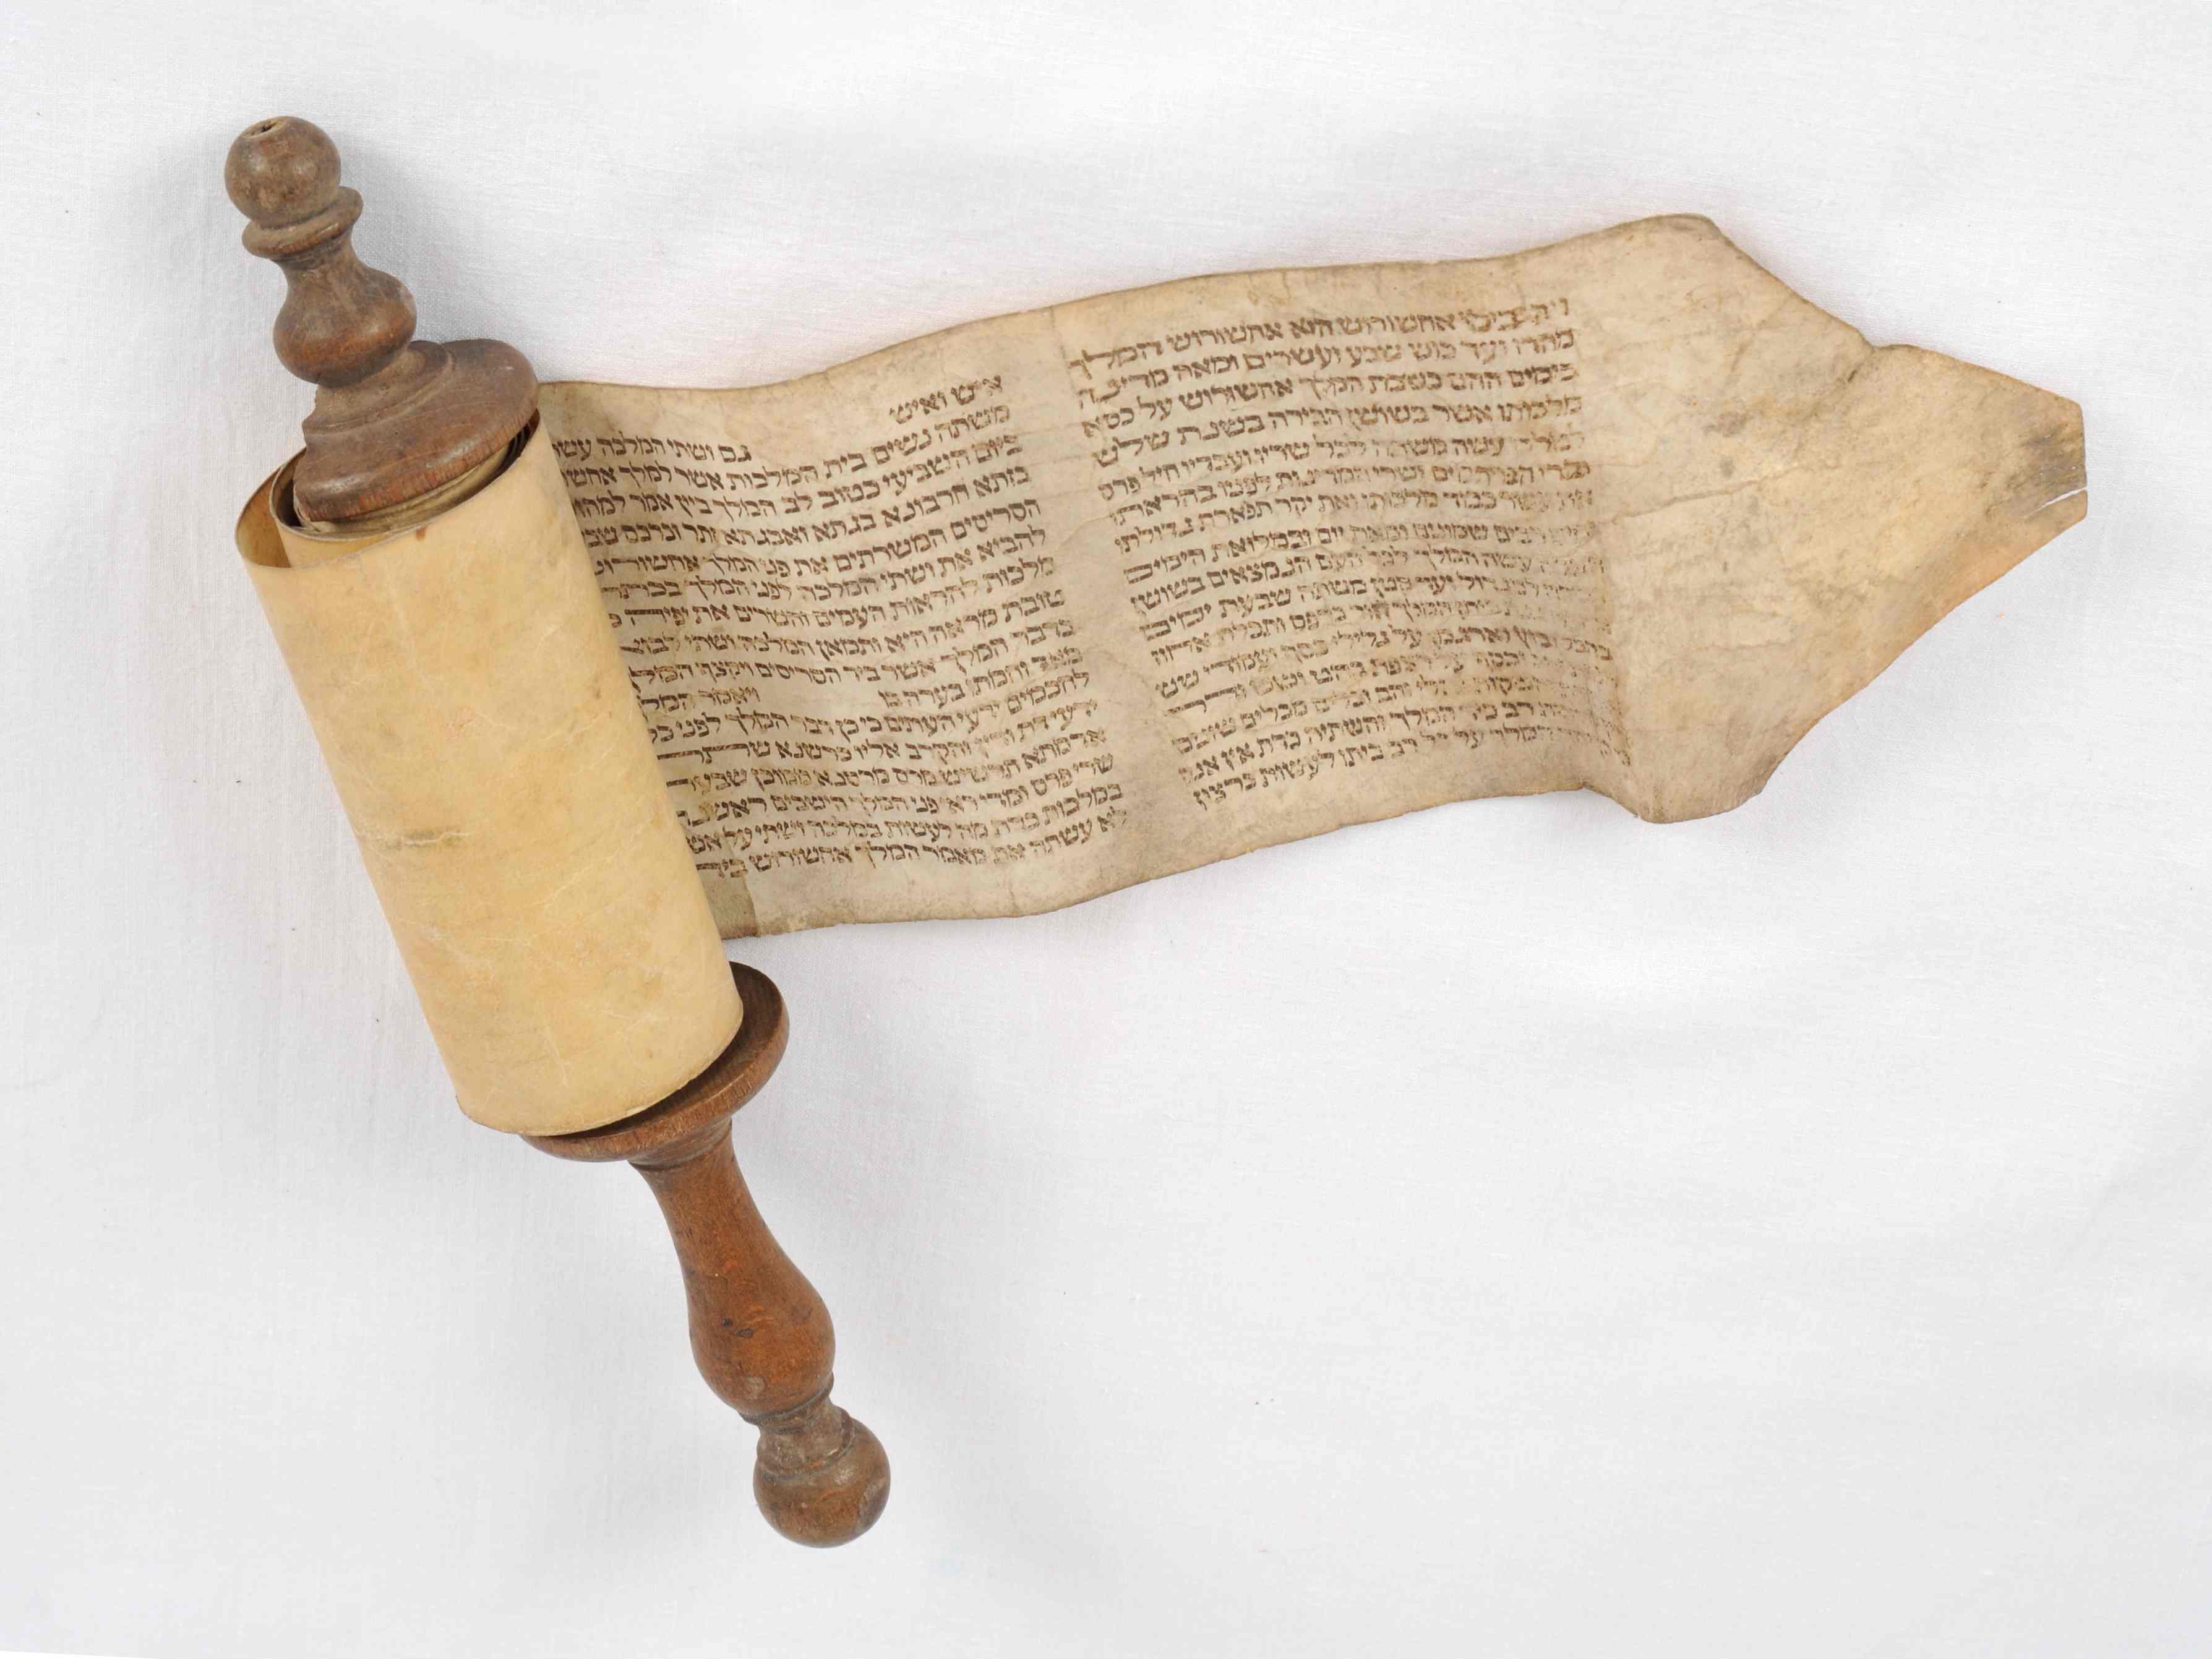 ויהי בימי אחשורוש הוא אחשורוש המלך
מהדו ועד כוש שבע ועשרים ומאה מדינה
בימים ההם כשבת המלך אחשורוש על כסא
מלכותו אשר בשושן הבירה בשנת שלש
למלכו עשה משתה לכל שריו ועבדיו חיל פרס
ומדי הפרתמים ושרי המדינות לפניו בהראתו
את עשר כבוד מלכותו ואת יקר תפארת גדולתו
ימים רבים שמונים ומאת יום ובמלואת הימים
עשה המלך לכל העם הנמצאים בשושן
למגדול ועד קטן משתה שבעת ימים
ביתן המלך חור כרפס ותכלת אחוז
בחבלי בוץ וארגמן על גלילי כסף ועמודי שש
וכסף על רצפת בהט ושש ודר
זהב וכלים מכלים שונים
רב כיד המלך והשתיה כדת אין אנס
המלך על כל רב ביתו לעשות כרצון
איש ואיש
גם ושתי המלכה עשתה
משתה נשים בית המלכות אשר למלך אחשו
ביום השביעי כטוב לב המלך ביין אמר למהו
בזתא חרבונא בגתא ואבגתא זתר וכרכס שב
הסריסים המשרתים את פני המלך אחשורוש
להביא את ושתי המלכה לפני המלך בכתר
מלכות להראות העמים והשרים את יפיה כי
טובת מראה היא ותמאן המלכה ושתי לבוא
בדבר המלך אשר ביד הסריסים ויקצף המלך
מאד וחמתו בערה בו
ויאמר המלך
לחכמים ידעי העתים כי כן דבר המלך לפני כל
ידעי דת ודין והקרב אליו כרשנא שתר
אדמתא תרשיש מרס מרסנא ממוכן שבעת
שרי פרס ומדי ראי פני המלך הישבים ראשנה
במלכות כדת מה לעשות במלכה ושתי על אשר
לא עשתה את מאמר המלך אחשורוש ביד